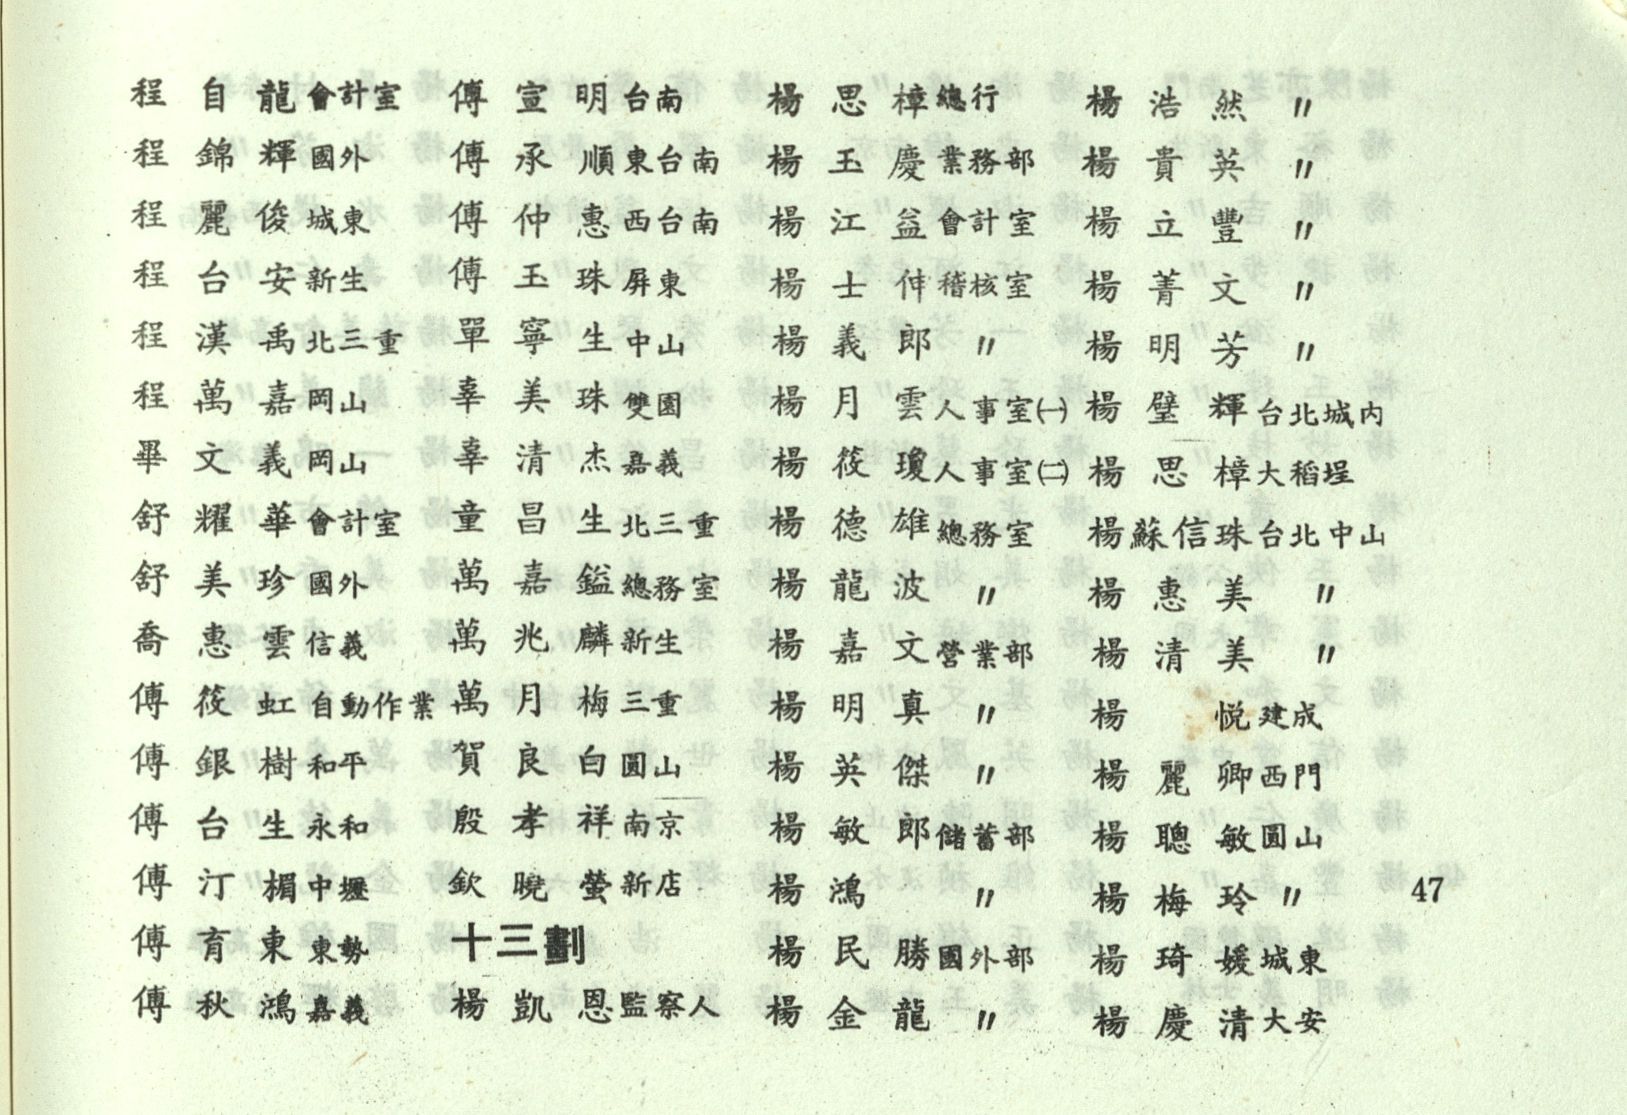 程自龍會計室
程錦輝國外
程麗俊城東
程台安新生
程漢禹北三重
程萬嘉岡山
畢文義岡山
舒耀華會計室
舒美珍國外
喬惠雲信義
傅筱虹自動作業
傅銀樹和平
傅台生永和
傅汀楣中壢
傅育東東勢
傅秋鴻嘉義
傅宣明台南
傅承順東台南
傅仲惠西台南
傅玉珠屏東
單寧生中山
辜美珠雙園
辜清杰嘉義
童昌生北三重
萬嘉鎰總務室
萬兆麟新生
萬月梅三重
賀良白圓山
殷孝祥南京
欽曉螢新店
十三劃
楊凱恩監察人
楊思樟總行
楊玉慶業務部
楊江益會計室
楊士伸稽核室
楊義郎〃
楊月雲人事室㈠
楊筱瓊人事室㈡
楊德雄總務室
楊龍波〃
楊嘉文營業部
楊明真〃
楊英傑〃
楊敏郎儲蓄部
楊鴻〃
楊民勝國外部
楊金龍〃
楊浩然〃
楊貴英〃
楊立豐〃
楊菁文〃
楊明芳〃
楊璧輝台北城內
楊思樟大稻埕
楊蘇信珠台北中山
楊惠美〃
楊清美〃
楊悅建成
楊麗卿西門
楊聰敏圓山
楊梅玲〃
楊琦媛城東
楊慶清大安
47